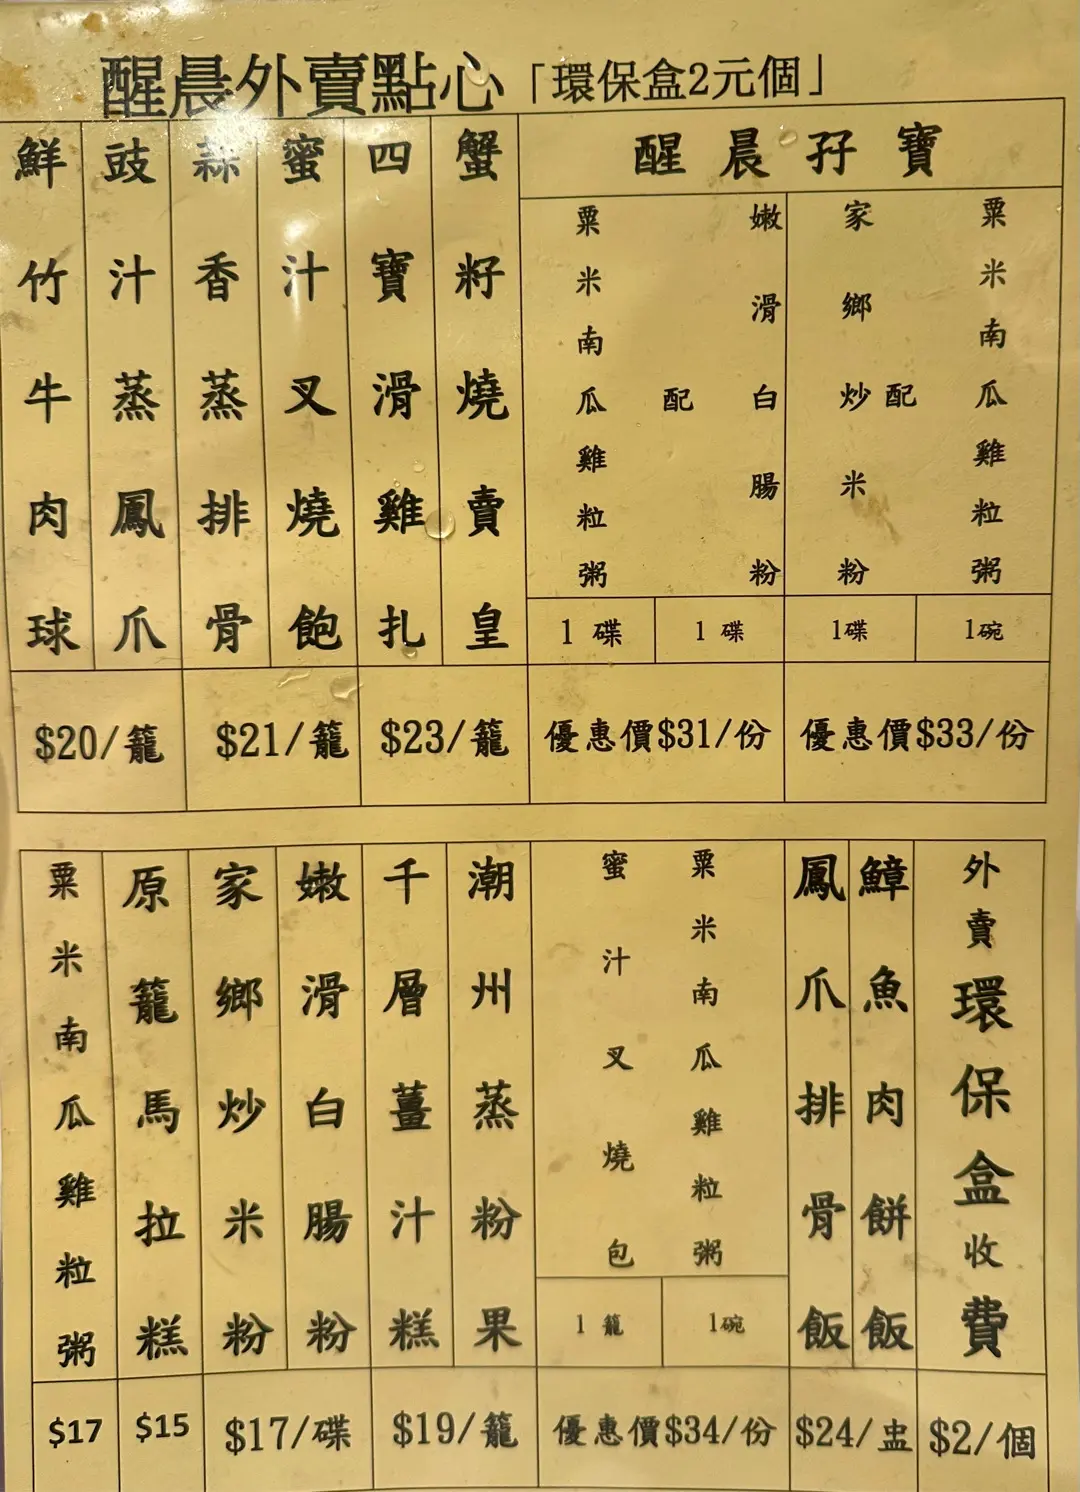 醒晨外賣點心「環保盒2元個」
蟹籽燒賣皇
四寶滑雞扎
蜜汁叉燒飽
蒜香蒸排骨
豉汁蒸鳳爪
鮮竹牛肉球
醒晨孖寶
粟米南瓜雞粒粥
配
家鄉炒米粉
嫩滑白腸粉
配
粟米南瓜雞粒粥
1 碟
1 碟
1碟
1碗
$20/籠
$21/籠
$23/籠
優惠價$31/份
優惠價$33/份
外賣環保盒收費
鱆魚肉餅飯
鳳爪排骨飯
粟米南瓜雞粒粥
蜜汁叉燒包
1 籠
1碗
潮州蒸粉果
千層薑汁糕
嫩滑白腸粉
家鄉炒米粉
原籠馬拉糕
粟米南瓜雞粒粥
$17
$15
$17/碟
$19/籠
優惠價$34/份
$24/盅
$2/個